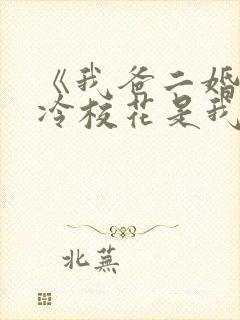 《我爸二婚
冷校花是我
北蕪